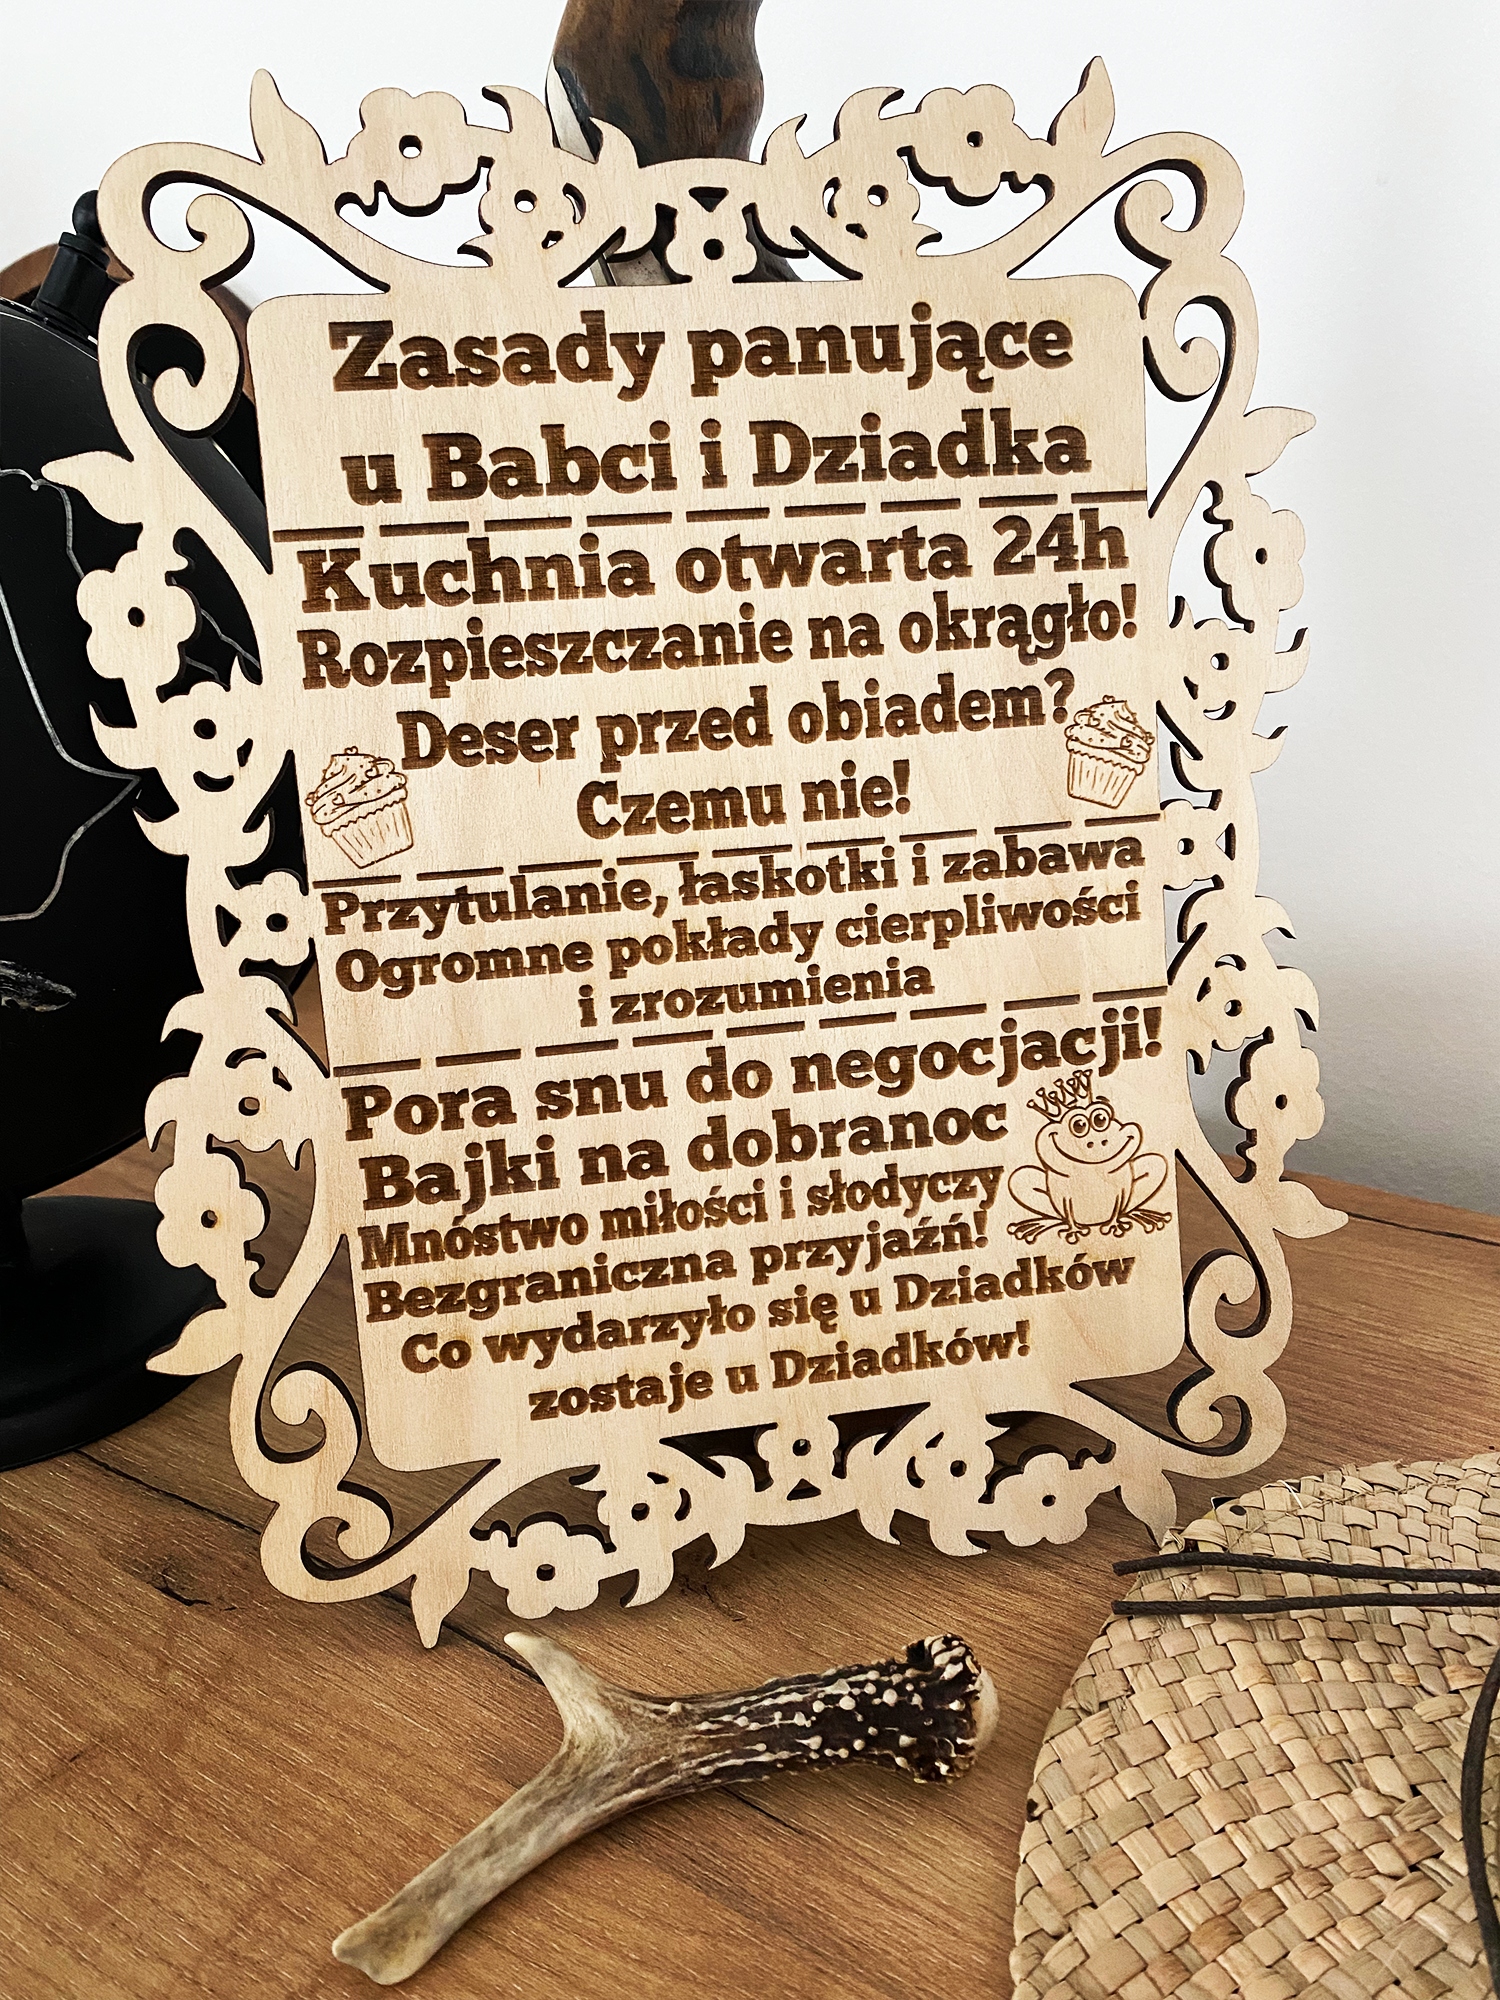 Zasady panujące
u Babci i Dziadka
Kuchnia otwarta 24h
Rozpieszczanie na okrągło!
Deser przed obiadem?
Czemu nie!
Przytulanie, łaskotki i zabawa
Ogromne pokłady cierpliwości
i zrozumienia
Pora snu do negocjacji!
Bajki na dobranoc
Mnóstwo miłości i słodyczy
Bezgraniczna przyjaźń!
Co wydarzyło się u Dziadków
zostaje u Dziadków!